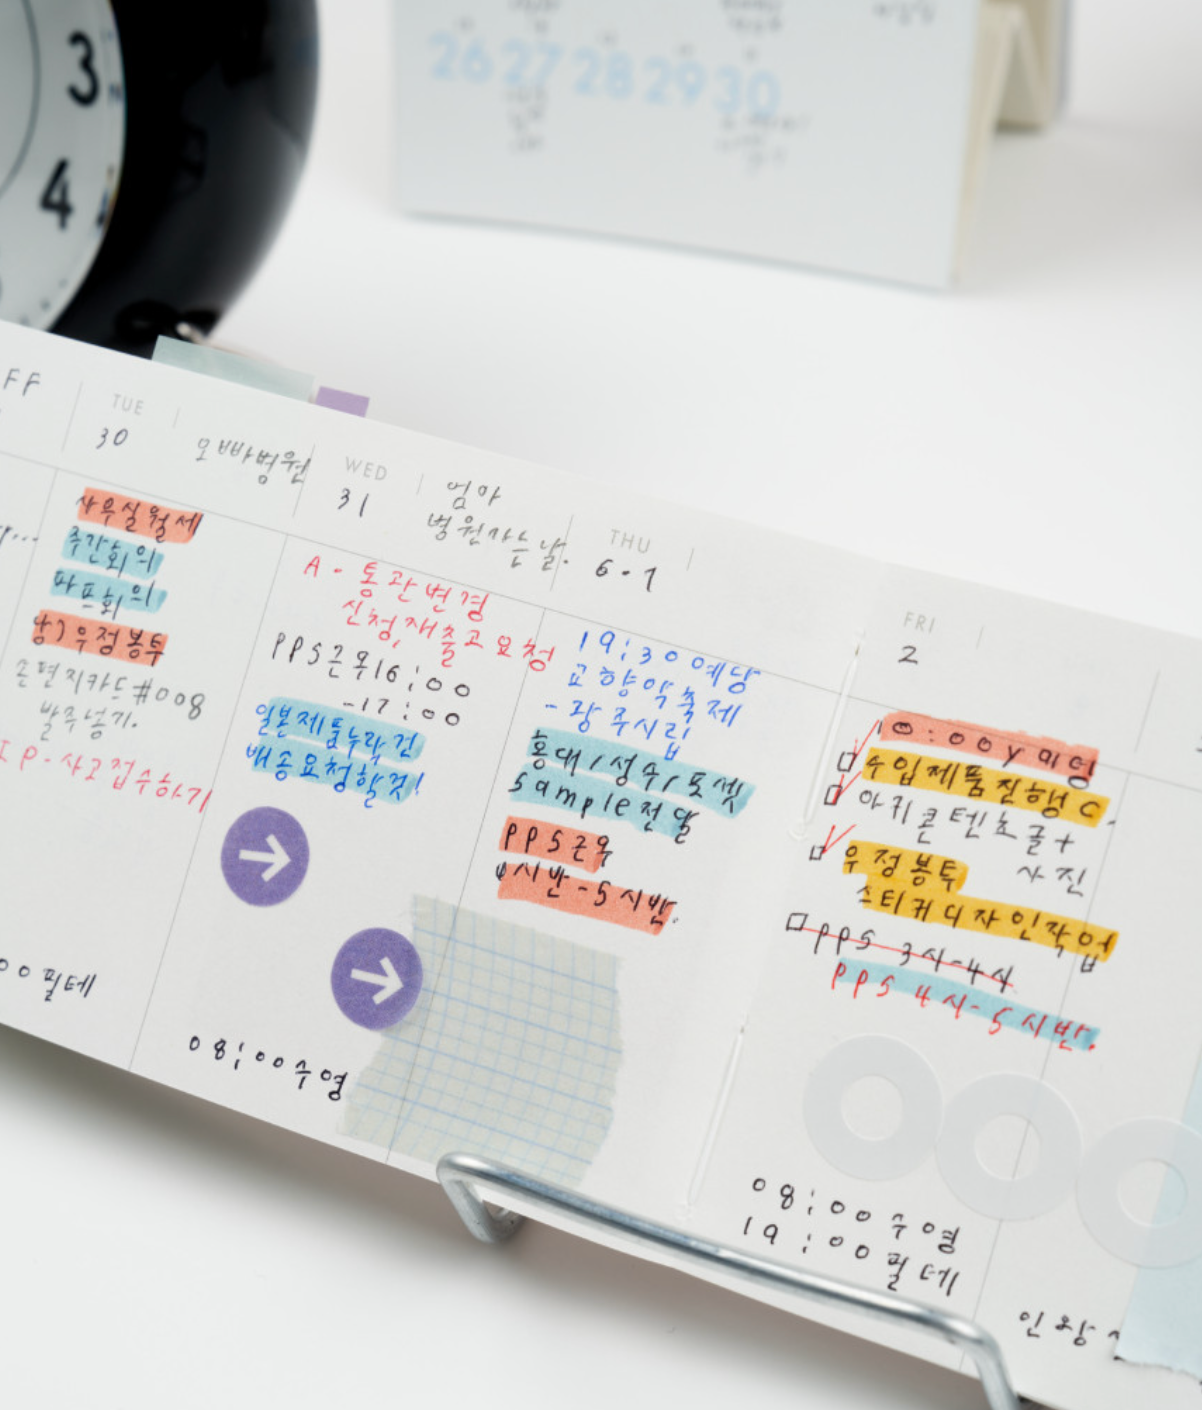 3
4
26 27 28 29 30
FF
TUE
30
오빠병원
사무실월세
주간회의
파프회의
우정봉투
손편지카드#008
발주넣기.
IP-사고접수하기
00필테
WED
31
엄마
병원가는날.
A-통관변경
신청,재출고요청
PPS근무16:00
-17:00
일본제품누락건
배송요청할것!
08:00수영
THU
6.1
19:30예당
교향악축제
-광주시립
홍대/성수/도셋
sample전달
PPS근무
4시반-5시반.
FRI
2
10:00y미팅
수입제품진행C.
아키콘텐츠글+
사진
우정봉투
스티커디자인작업
PPS 3시-4시
PPS 4시-5시반.
08:00수영
19:00필테